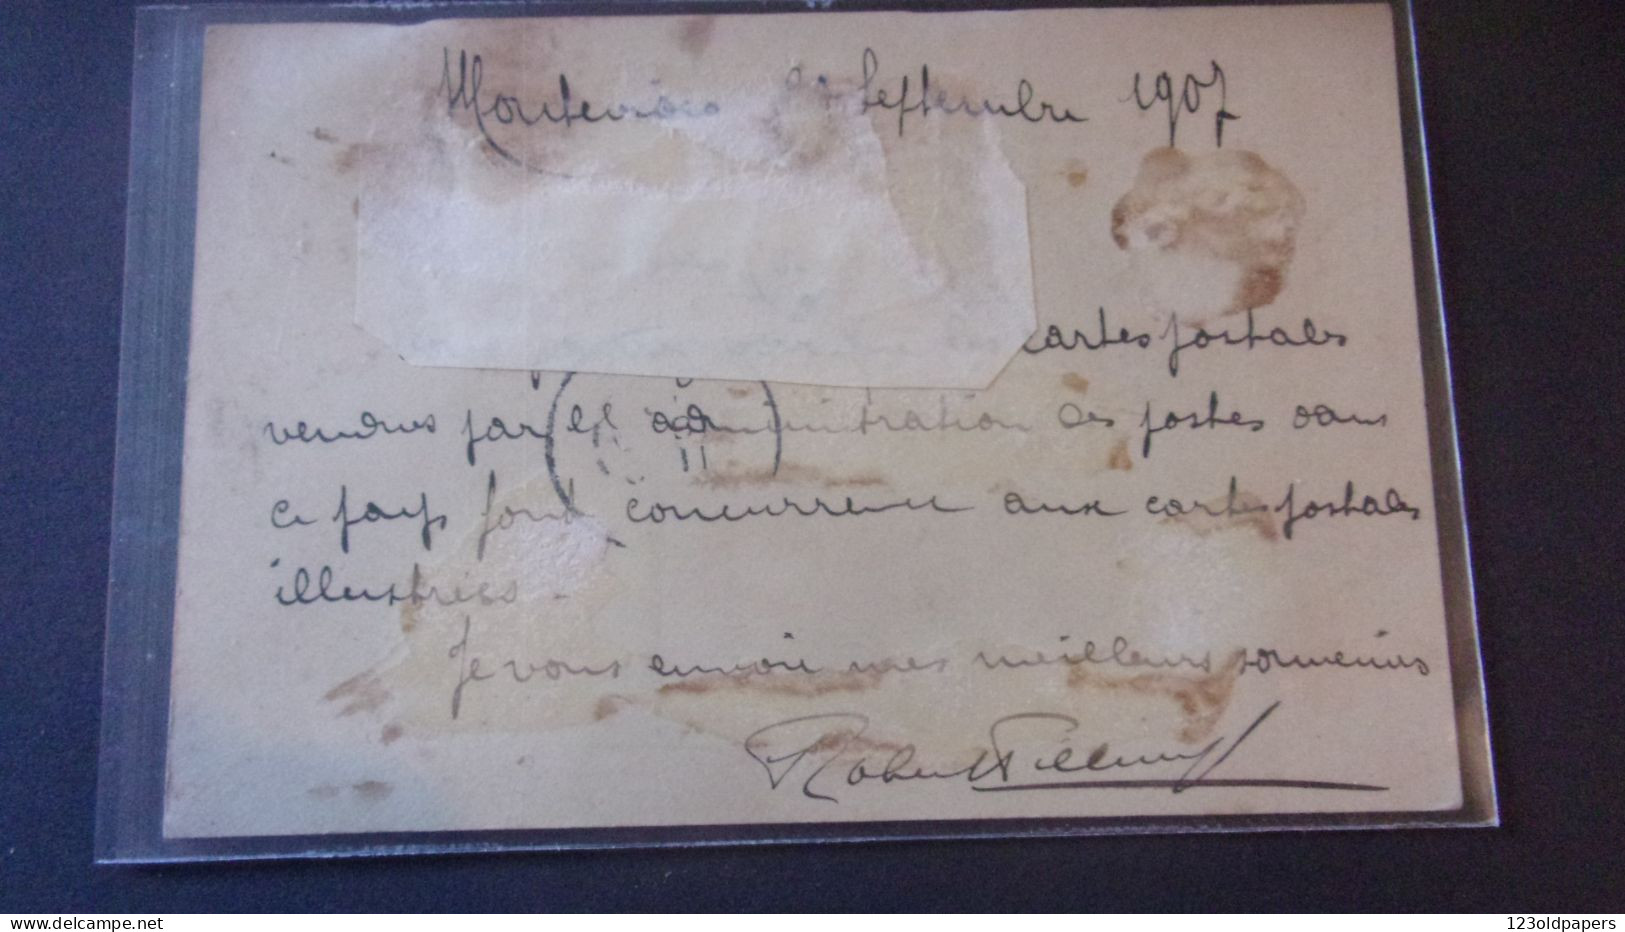 Montevideo Septembre 1907
cartes postales
vendus par l'administration des postes dans
ce pays font concurrence aux cartes postales
illustrées.
Je vous envoie mes meilleurs souvenirs
Robert
123oldpapers